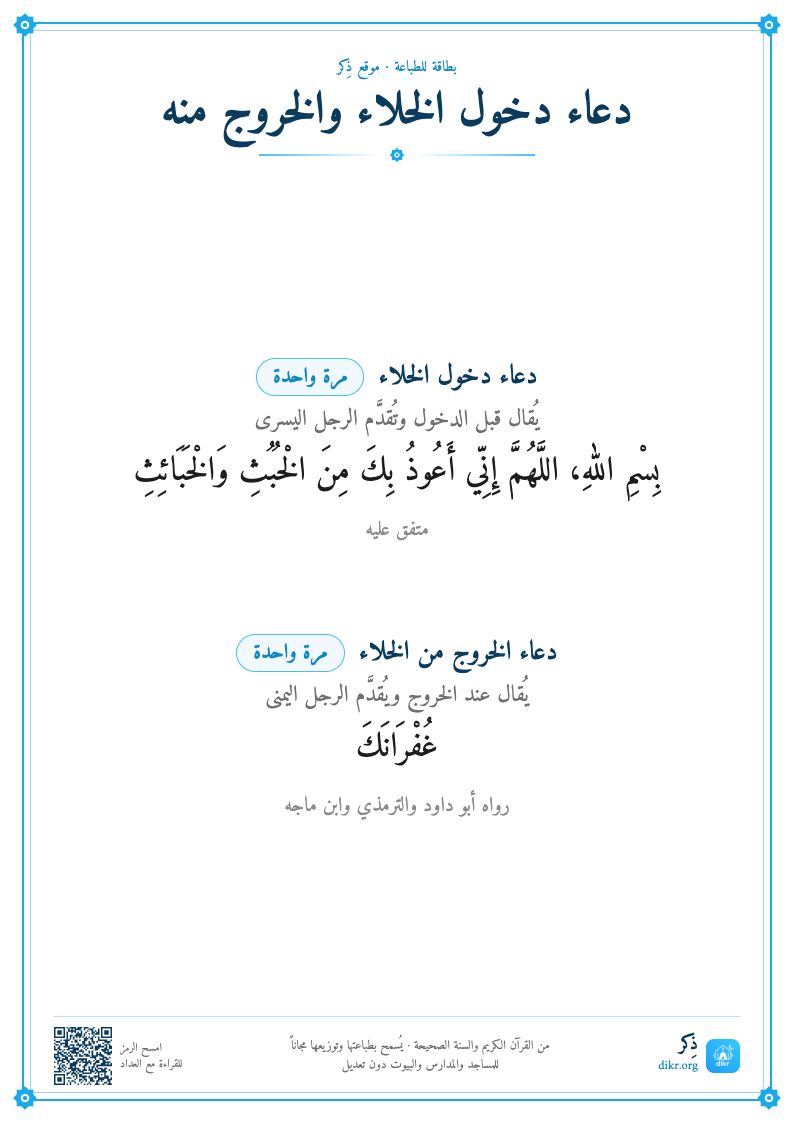 بطاقة للطباعة · موقع ذِكر
دعاء دخول الخلاء والخروج منه
دعاء دخول الخلاء مرة واحدة
يُقال قبل الدخول وتُقدَّم الرجل اليسرى
بِسْمِ اللهِ، اللَّهُمَّ إِنِّي أَعُوذُ بِكَ مِنَ الْخُبُثِ وَالْخَبَائِثِ
متفق عليه
دعاء الخروج من الخلاء مرة واحدة
يُقال عند الخروج ويُقدَّم الرجل اليمنى
غُفْرَانَكَ
رواه أبو داود والترمذي وابن ماجه
ذِكر
dikr.org
dikr
من القرآن الكريم والسنة الصحيحة · يُسمح بطباعتها وتوزيعها مجاناً
للمساجد والمدارس والبيوت دون تعديل
امسح الرمز
للقراءة مع العداد